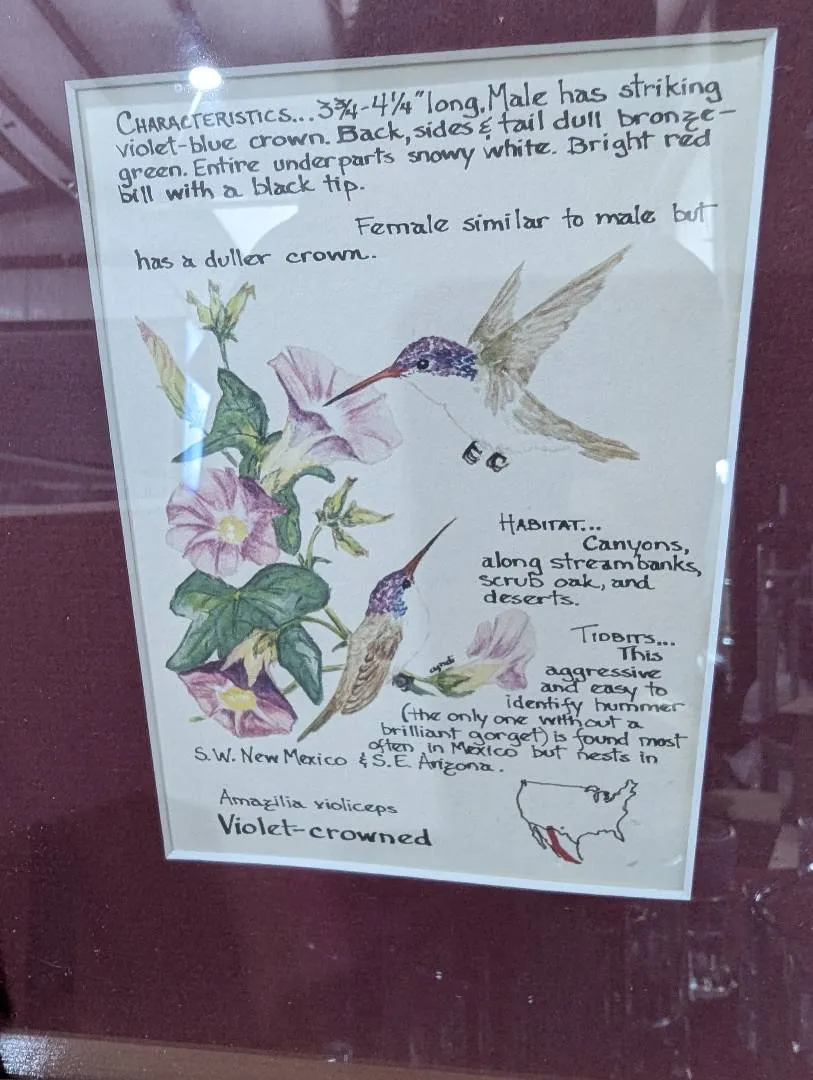 CHARACTERISTICS... 3¾-4¼" long. Male has striking
violet-blue crown. Back, sides & tail dull bronze-
green. Entire underparts snowy white. Bright red
bill with a black tip.
Female similar to male but
has a duller crown.
HABITAT...
Canyons,
along streambanks,
scrub oak, and
deserts.
TIDBITS...
This
aggressive
and easy to
identify hummer
(the only one without a
brilliant gorget) is found most
often in Mexico but nests in
S.W. New Mexico & S.E. Arizona.
cyndi
Amazilia violiceps
Violet-crowned